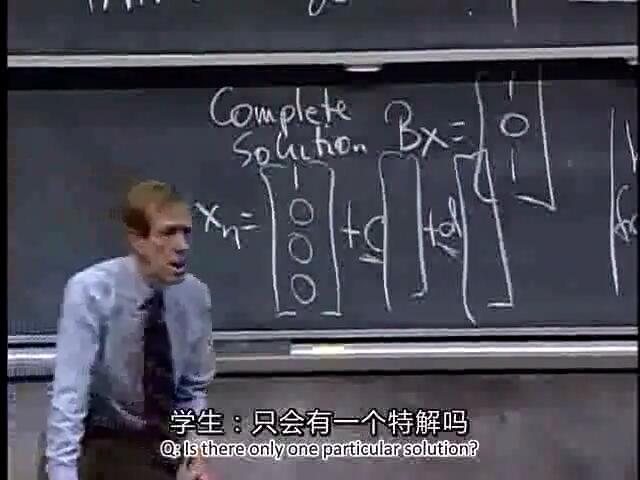 Complete
Solution Bx = [1 0 1]
x_n = [1 0 0 0] + c [ ] + d [ ]
学生：只会有一个特解吗
Q: Is there only one particular solution?